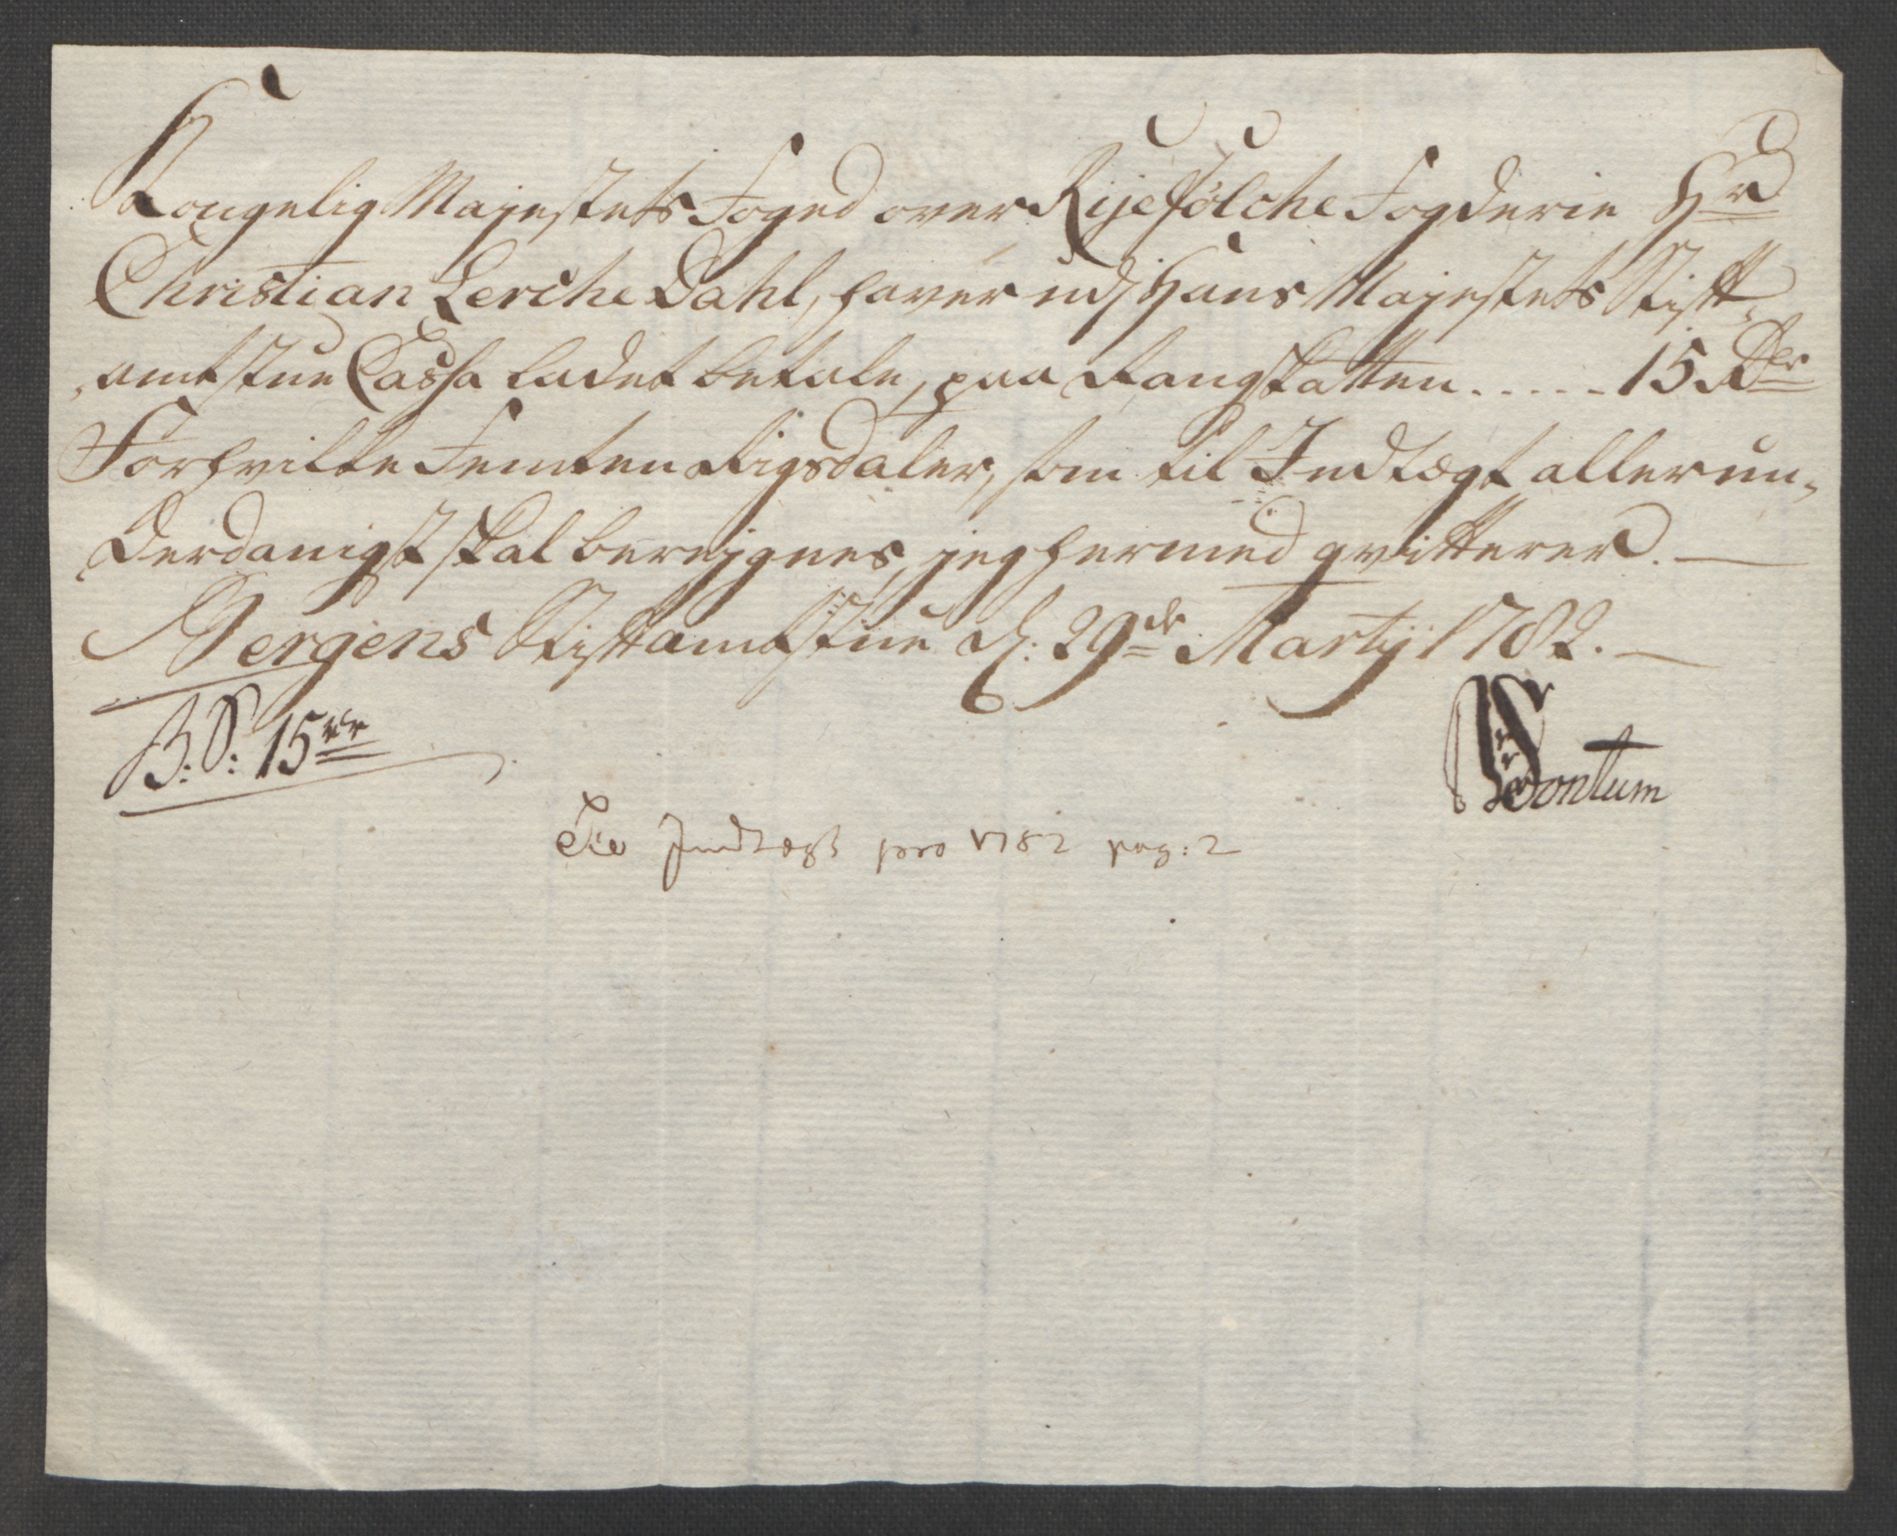 Kongelig Majestets Foged over Rÿefölche Fogderie Hr
Christian Lerche Dahl, haver udj Hans Majestets Stift-
amtstue Cassa ladet betale, paa Rangskatten ..... 15 Rdr
Forhvilke Femten Rigsdaler, som til Indtægt allerun-
derdanigst skal berejgnes, jeg hermed qvitterer. —
Bergens Stiftamtstue d: 29de Martij 1782. —
B: S: 15 rdr
Fontum
Til Indtægt pro 1782 pag: 2